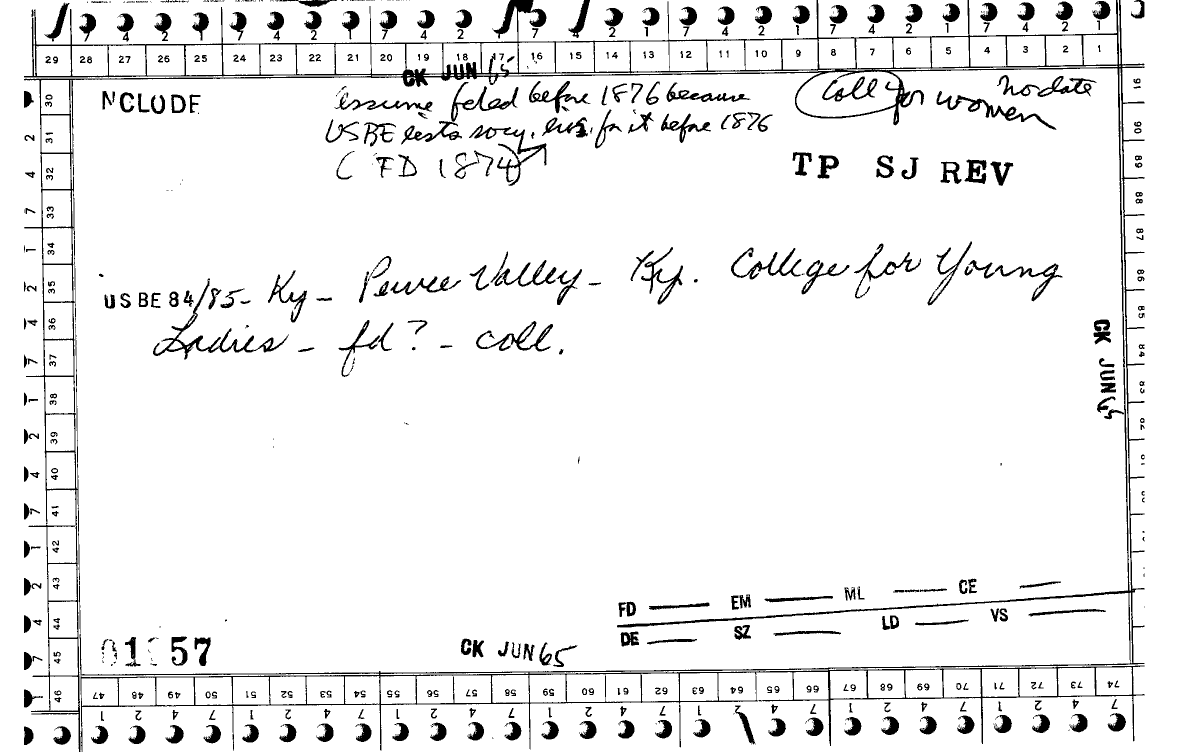 7 4 2 1 7 4 2 1 7 4 2 7 4 2 1 7 4 2 1 7 4 2 1 7 4 2 1
29 28 27 26 25 24 23 22 21 20 19 18 17 16 15 14 13 12 11 10 9 8 7 6 5 4 3 2 1
CK JUN 65
NCLUDE
assume fded before 1876 because
USBE lists for it before 1876
(FD 1874)
Coll for women
No date
TP SJ REV
USBE 84/85 - Ky - Pewee Valley - Ky. College for Young
Ladies - fd? - coll.
CK JUN 65
FD EM ML CE
DE SZ LD VS
57
CK JUN 65
30 31 32 33 34 35 36 37 38 39 40 41 42 43 44 45 46
2 4 7 1 2 4 7 1 2 4 7 1 2 4 7 1
91 90 89 88 87 86 85 84 83 82 81
47 48 49 50 51 52 53 54 55 56 57 58 59 60 61 62 63 64 65 66 67 68 69 70 71 72 73 74
1 2 4 7 1 2 4 7 1 2 4 7 1 2 4 7 1 2 4 7 1 2 4 7 1 2 4 7